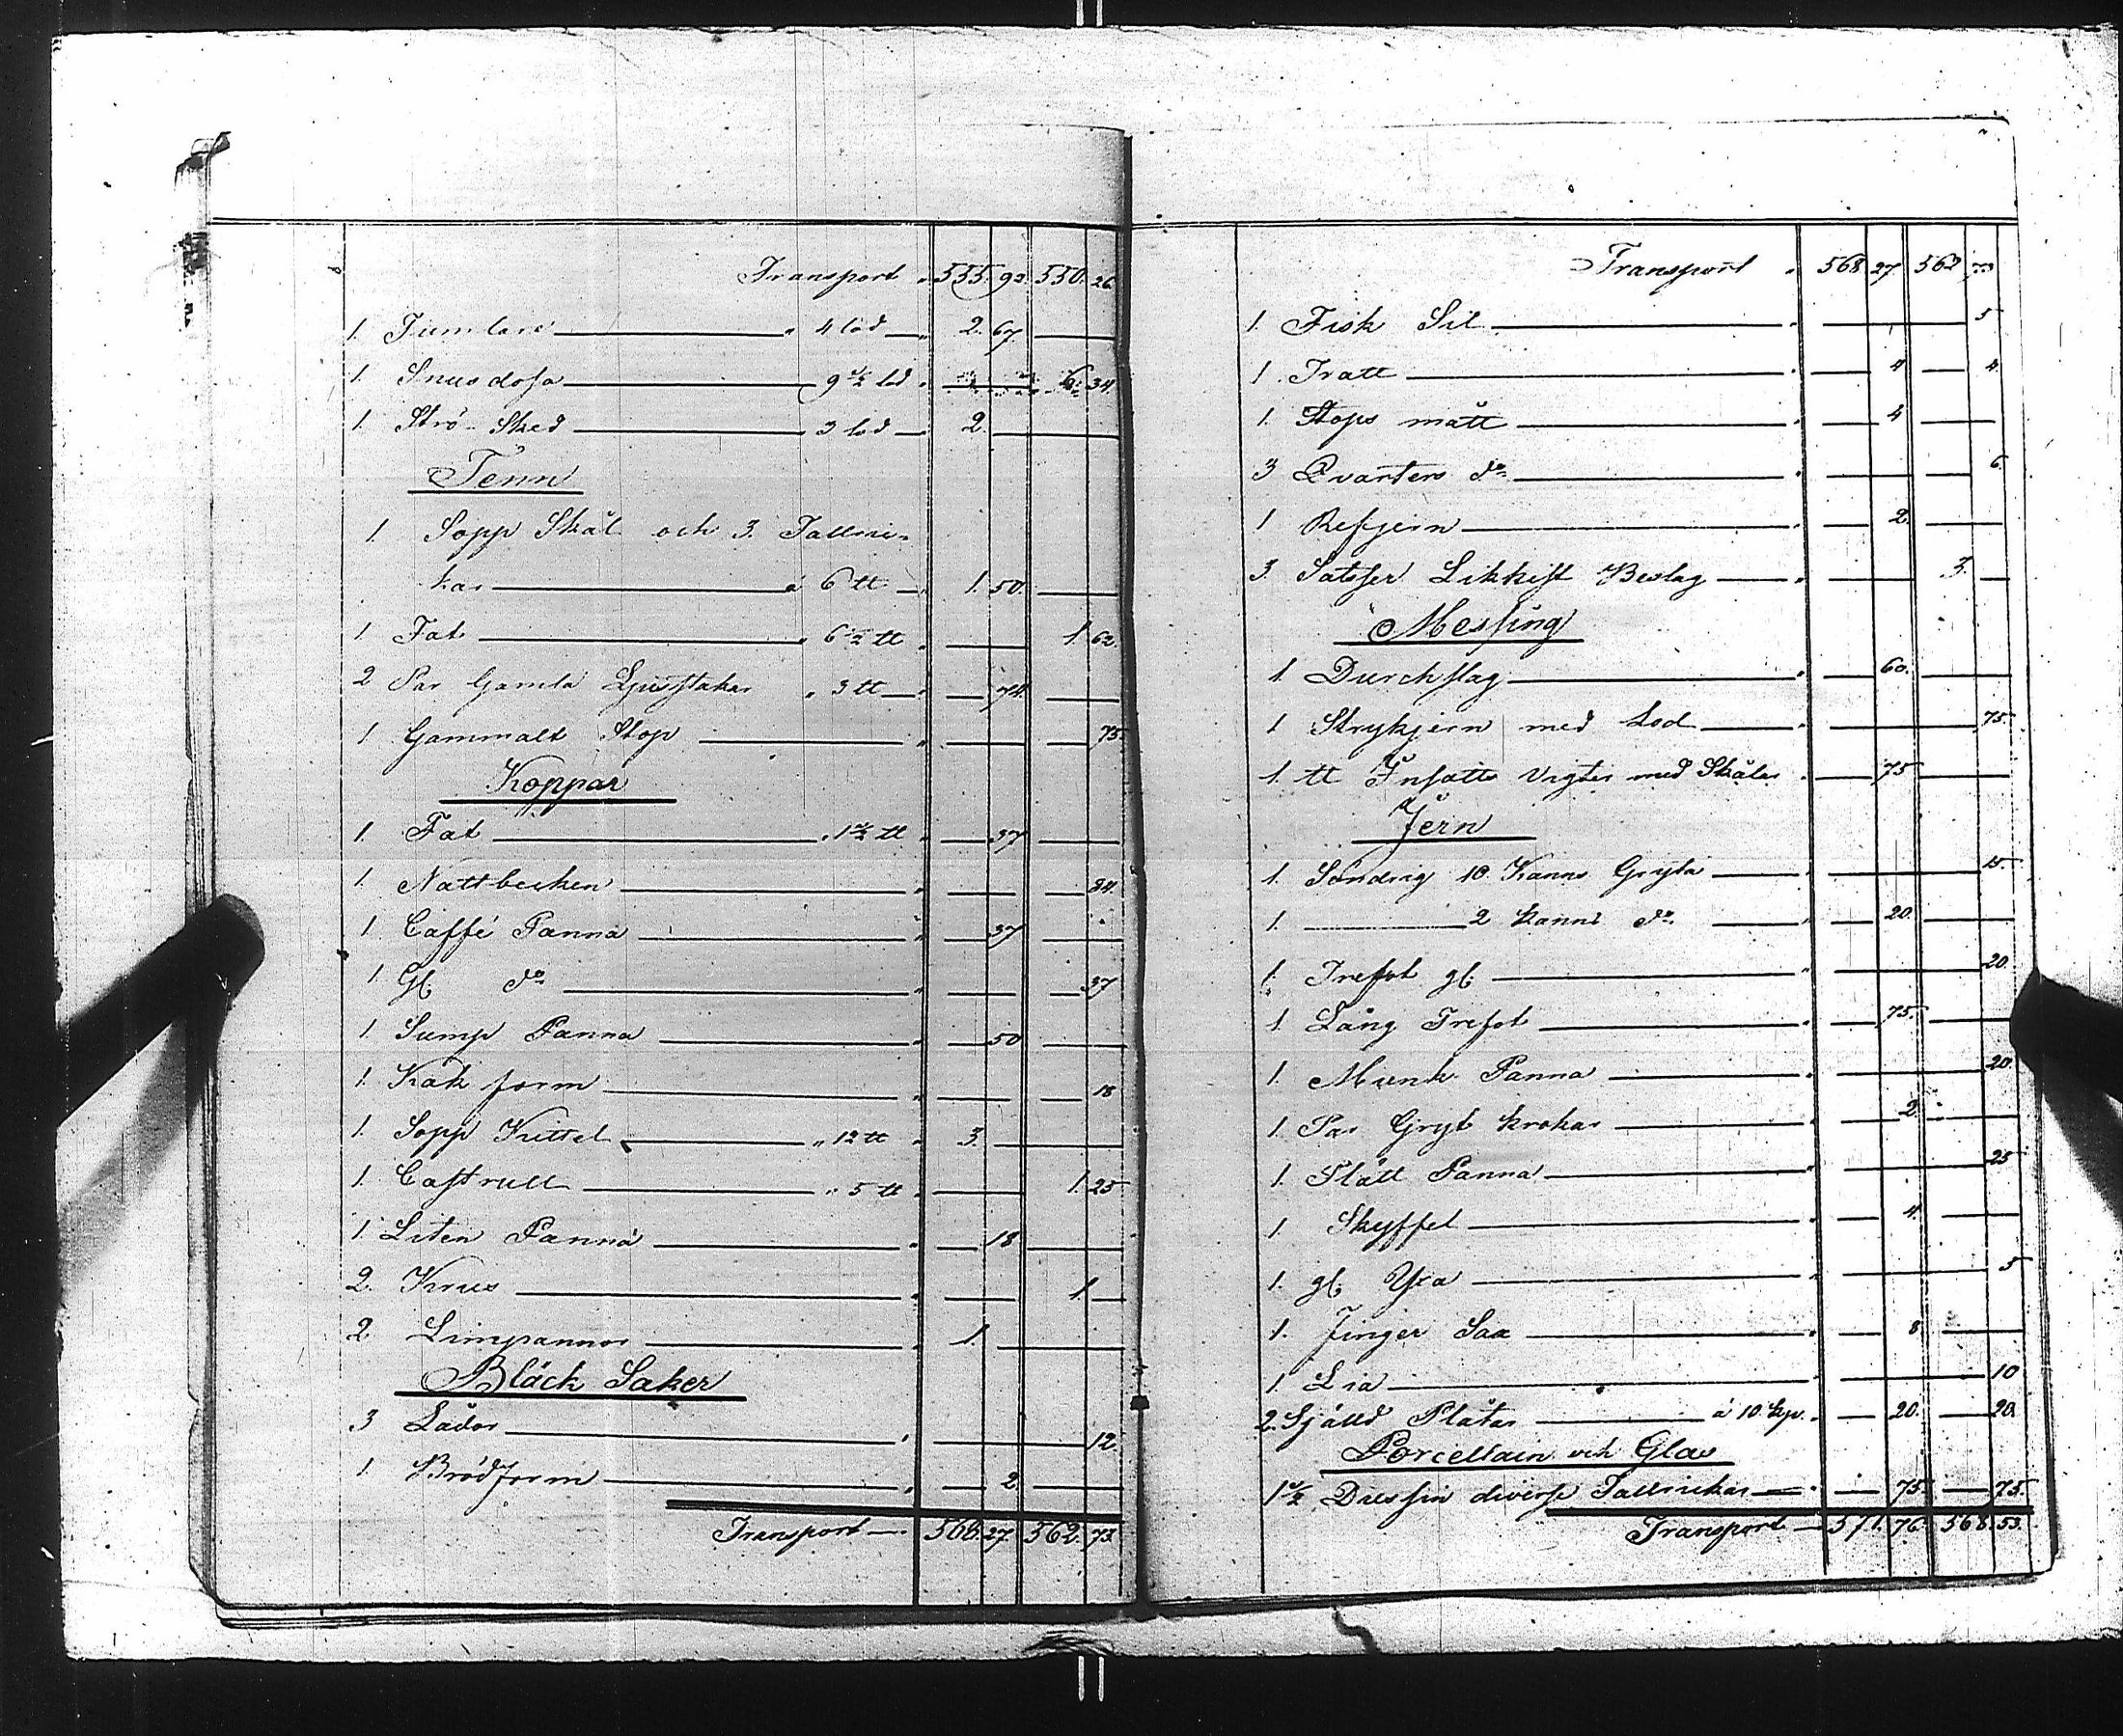 Transport „ 555. 92. 550. 26.
1. Tumlare „ 4 lod „ 2. 67.
1. Snusdosa 9 1/2 lod „ 6. 34.
1. Strö-Sked „ 3 lod 2.
Tenn
1. Sopp Skål och 3. Tallri-
kar á 6 tt 1. 50.
1 Fat „ 6 1/2 tt „ 1. 62.
2 Par Gamla Ljusstakar „ 3 tt „ 74.
1 Gammalt Stop „ 75.
Koppar
1. Fat „ 1 1/2 tt „ 37
1. Nattbecken „ 84.
1. Caffé Panna „ 37
1 Gl. do „ 37
1 Sump Panna „ 50
1. Kak form „ 18
1. Sopp Kittel „ 12 tt „ 3.
1. Castrull „ 5 tt „ 1. 25
1. Liten Panna „ 18
2. Krus „ 1.
2 Limpannor „ 1.
Bläck Saker
3 Lådor „ 12.
1. Brödform „ 2
Transport 568. 27. 562. 73.
Transport „ 568. 27. 562 73
1. Fisk Sil „ 5
1. Tratt „ 4 4.
1. Stops mått „ 4
3 Qvarters do „ 6.
1 Refjern „ 2.
3. Satser Likkist Beslag „ 3.
Messing
1. Durchslag „ 60.
1 Strykjern med Lod „ 75.
1. tt Insatts Vigter med Skålar „ 75
Jern
1. Söndrig 10. Kanns Gryta 15
1. 2 Kanns do „ 20.
1. Trefot gl. „ 20.
1. Lång Trefot „ 75.
1. Munk Panna „ 20.
1. Par Gryt krokar „ 2.
1. Plått Panna „ 25
1. Skyffel „ 4.
1. gl. Yxa „ 5
1. Finger Sax „ 8
1. Lia 10
2. Själld Plåtar á 10 kp. „ 20. 20.
Porcellain och Glas
1 1/2 Dussin diverse Tallrickar „ 75. 75.
Transport 571. 76. 568. 53.